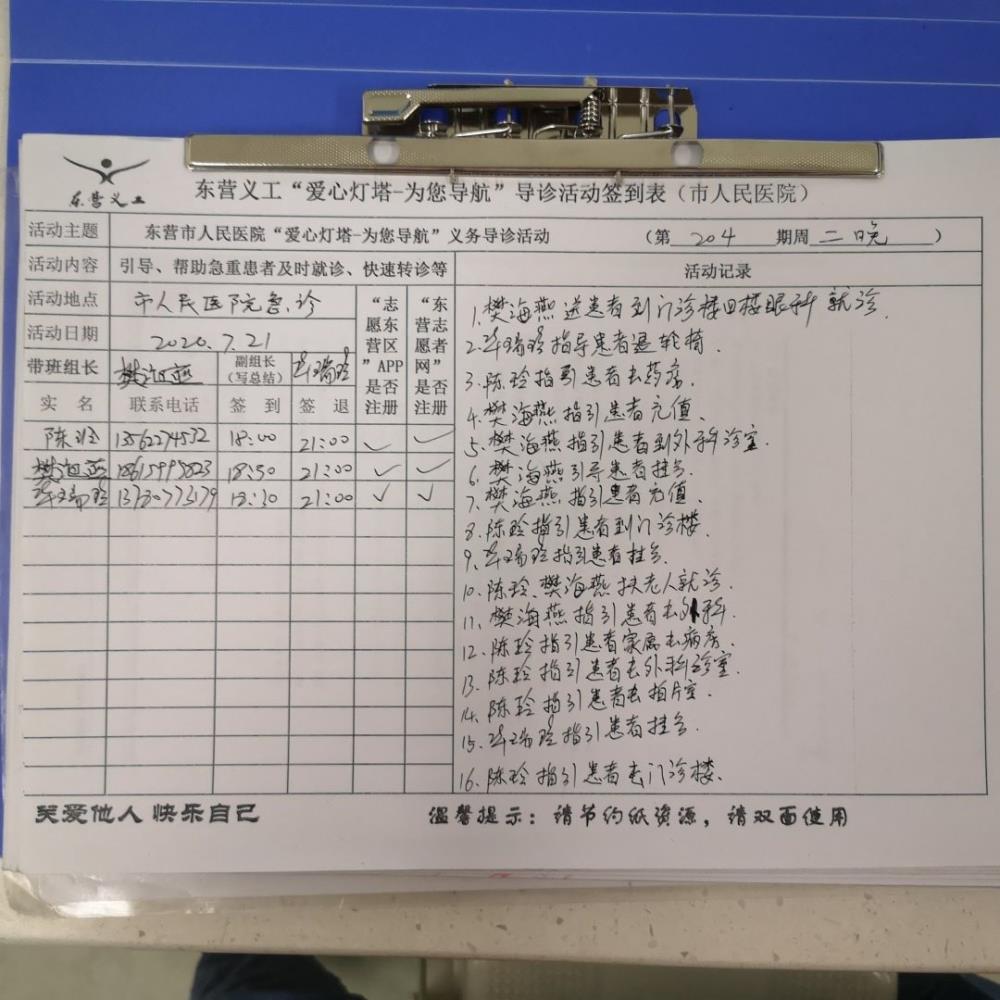 东营义工
东营义工“爱心灯塔-为您导航”导诊活动签到表（市人民医院）
活动主题 东营市人民医院“爱心灯塔-为您导航”义务导诊活动 （第 204 期周 二晚 ）
活动内容 引导、帮助急重患者及时就诊、快速转诊等 活动记录
活动地点 市人民医院急诊
活动日期 2020.7.21
带班组长 樊海燕 副组长（写总结） 瑞玲
“志愿东营区”APP是否注册
“东营志愿者网”是否注册
实 名 联系电话 签 到 签 退
陈玲 13562274532 18:00 21:00 ✓ ✓
樊海燕 21:00 ✓ ✓
瑞玲 21:00 ✓ ✓
1.樊海燕送患者到门诊楼四楼眼科就诊.
2.瑞玲指导患者退轮椅.
3.陈玲指引患者去药房.
4.樊海燕指引患者充值.
5.樊海燕指引患者到外科诊室.
6.樊海燕引导患者挂号.
7.樊海燕指引患者充值.
8.陈玲指引患者到门诊楼.
9.瑞玲指引患者挂号.
10.陈玲、樊海燕扶老人就诊.
11.樊海燕指引患者去外科.
12.陈玲指引患者家属去病房.
13.陈玲指引患者去外科诊室.
14.陈玲指引患者去拍片室.
15.瑞玲指引患者挂号.
16.陈玲指引患者去门诊楼.
关爱他人 快乐自己
温馨提示：请节约纸资源，请双面使用